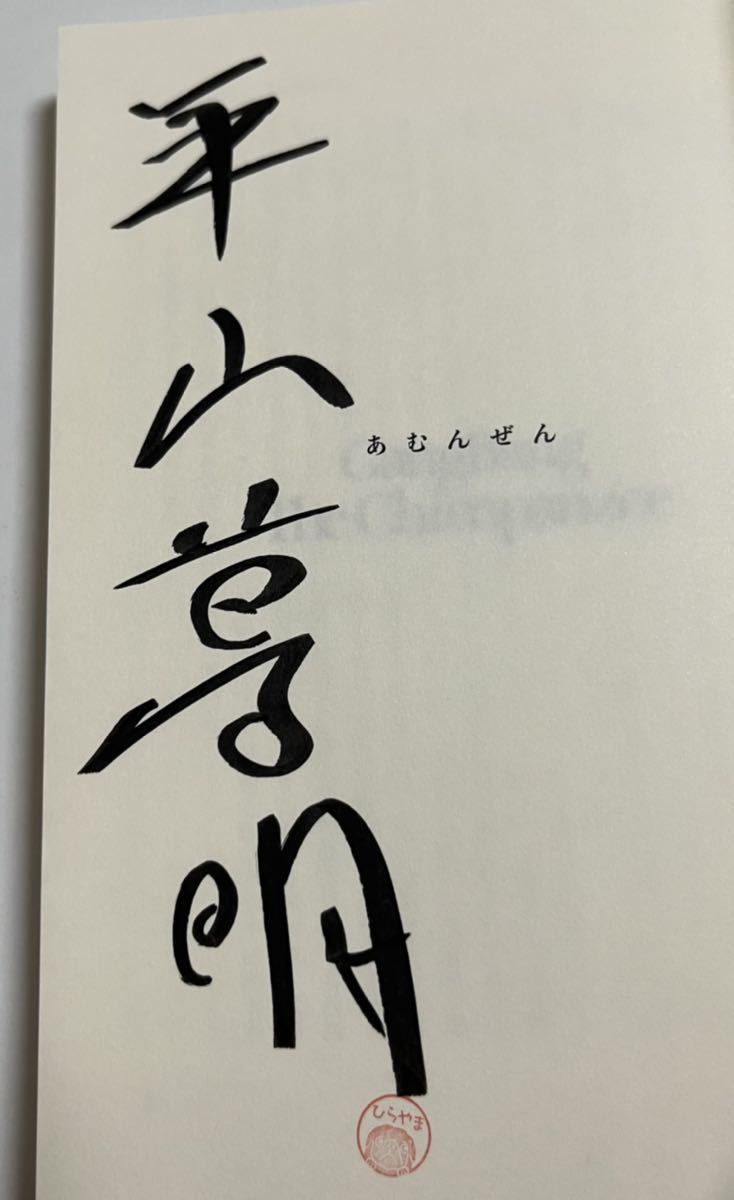 平山夢明
あむんぜん
ひらやま